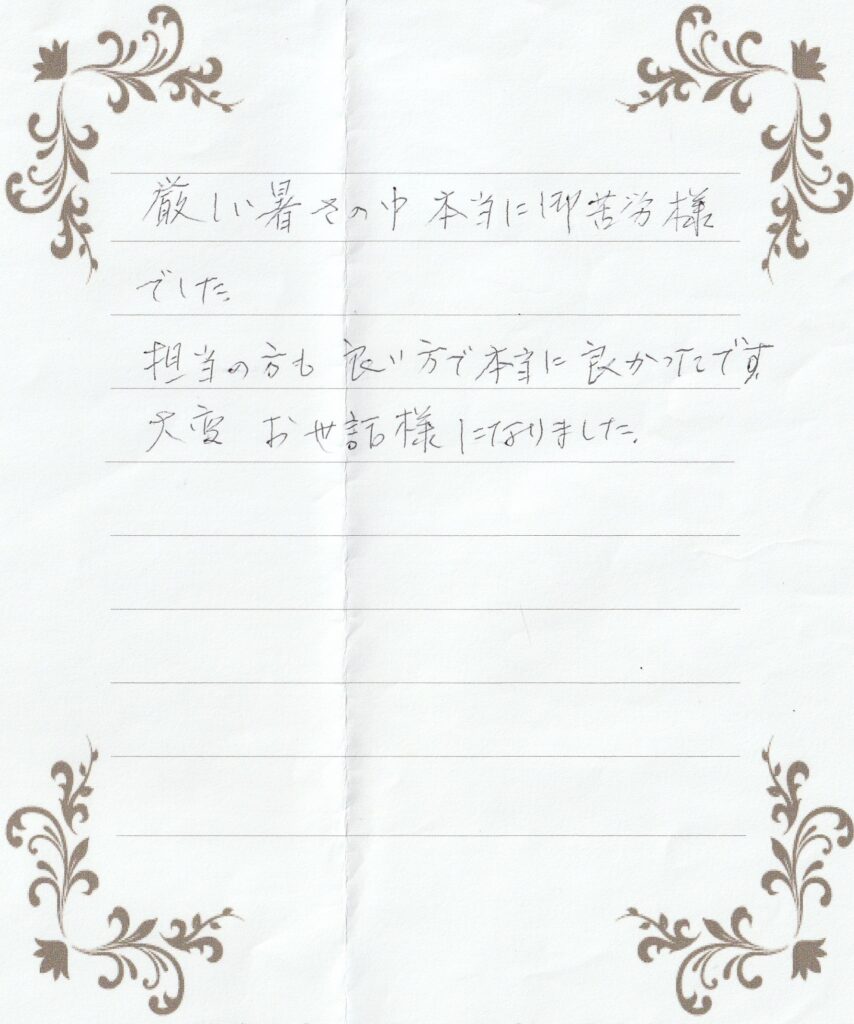 厳しい暑さの中 本当に御苦労様
でした。
担当の方も 良い方で本当に 良かったです。
大変 お世話様になりました。